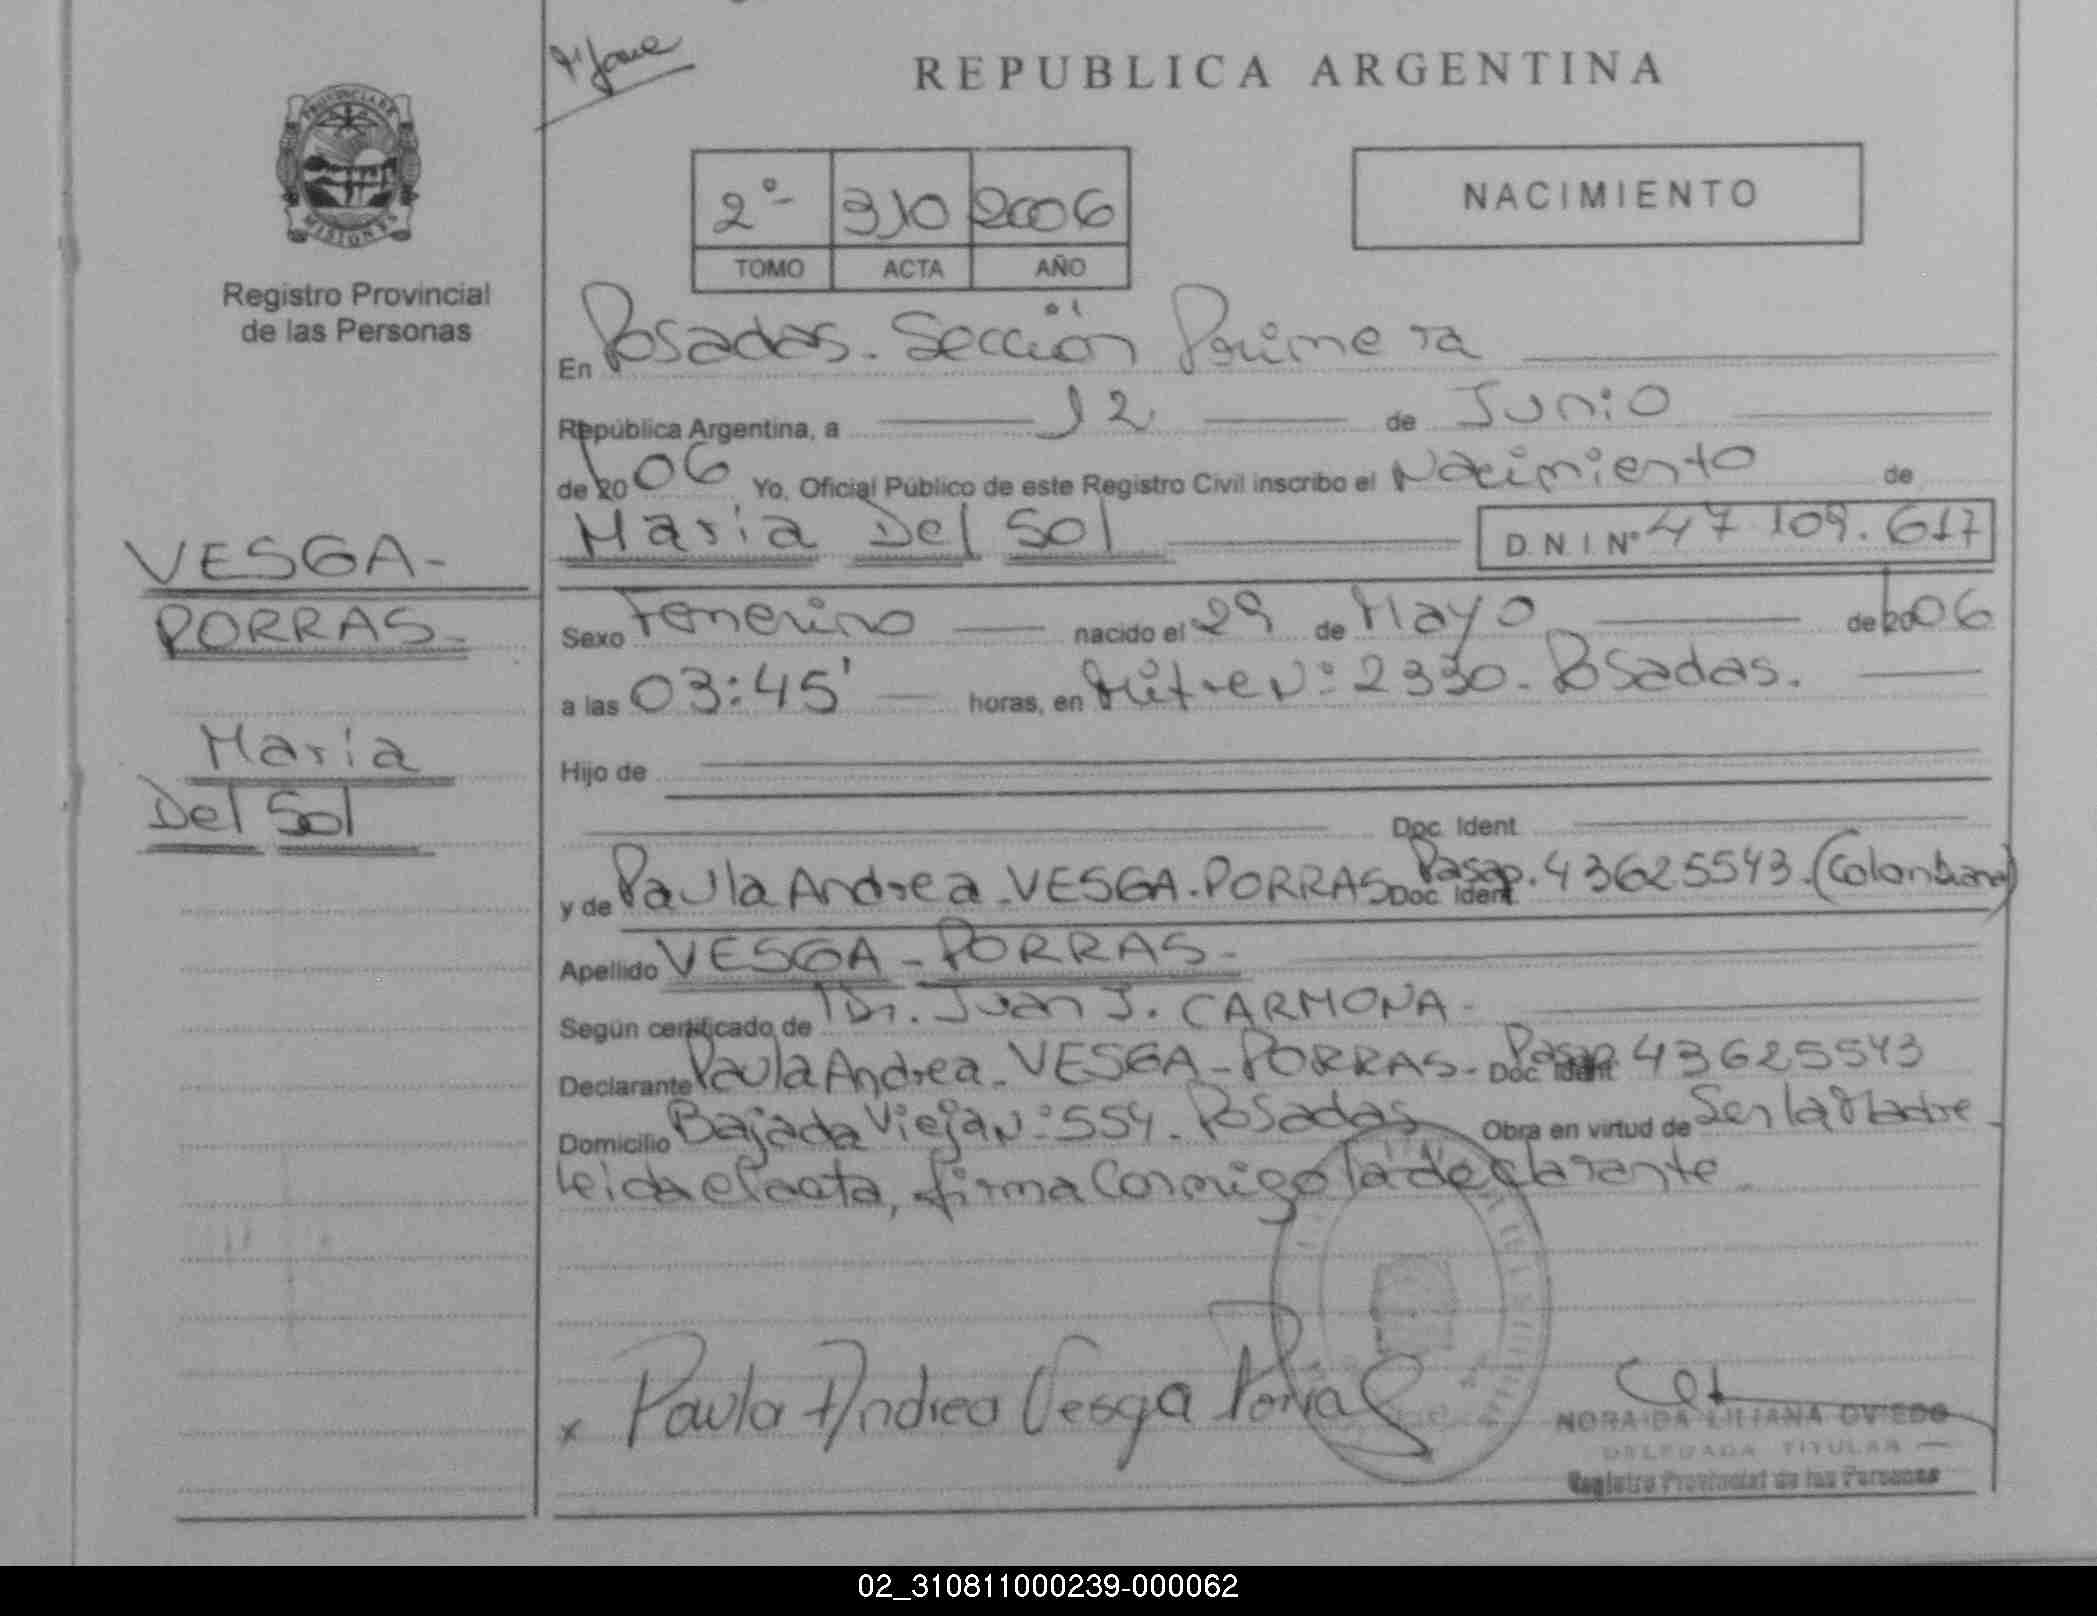 REPUBLICA ARGENTINA
PROVINCIA DE
MISIONES
Registro Provincial
de las Personas
2º 310 2006
TOMO ACTA AÑO
NACIMIENTO
En Posadas. Sección Primera
República Argentina, a 12 de Junio
de 2006 Yo, Oficial Público de este Registro Civil inscribo el Nacimiento de
Maria Del Sol D.N.I. Nº 47.109.617
VESGA-
PORRAS-
Maria
Del Sol
Sexo Femenino nacido el 29 de Mayo de 2006
a las 03:45' horas, en Mitre Nº: 2330. Posadas.
Hijo de
Doc. Ident.
y de Paula Andrea VESGA-PORRAS Doc. Ident. Pasap. 43625543. (Colombiana)
Apellido VESGA-PORRAS-
Según certificado de Dr. Juan J. CARMONA-
Declarante Paula Andrea VESGA-PORRAS- Doc. Ident. Pasap. 43625543
Domicilio Bajada Vieja Nº: 554. Posadas Obra en virtud de Ser la Madre
Leida el acta, firma Conmigo la declarante
x Paula Andrea Vesga Porras
NORAIDA LILIANA OVIEDO
DELEGADA TITULAR
Registro Provincial de las Personas
02_310811000239-000062